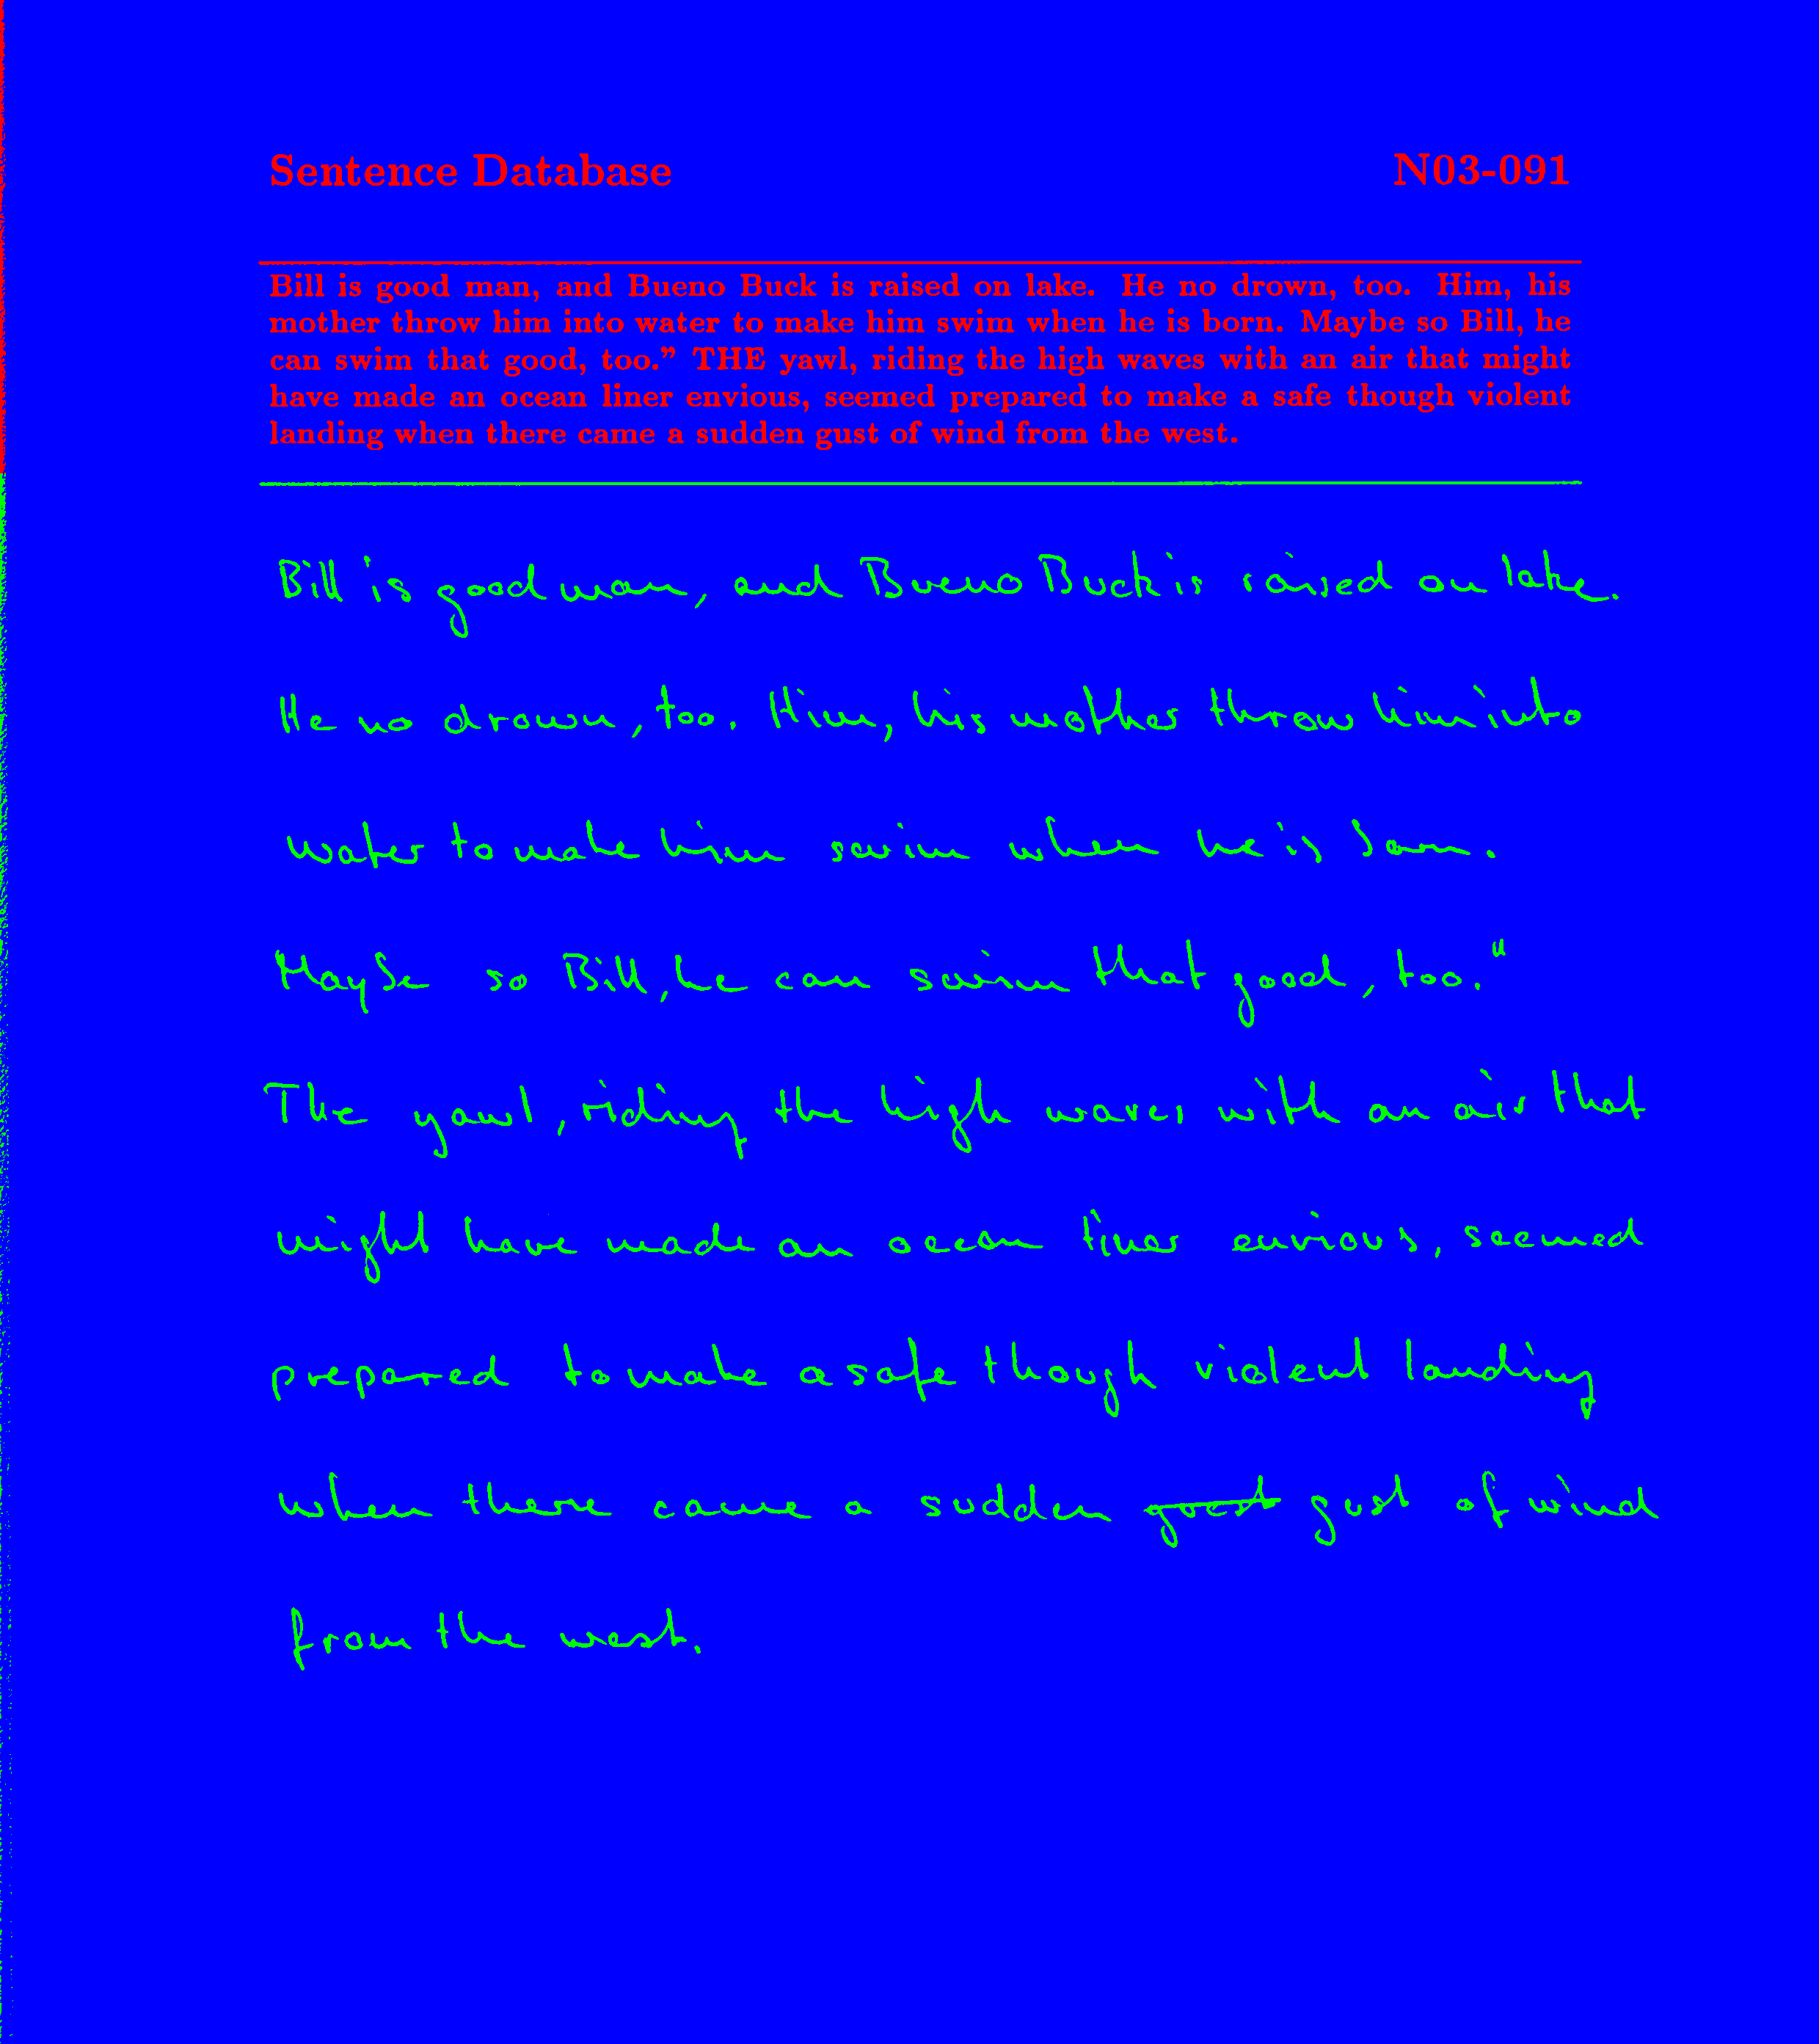 Sentence Database N03-091
Bill is good man, and Bueno Buck is raised on lake. He no drown, too. Him, his
mother throw him into water to make him swim when he is born. Maybe so Bill, he
can swim that good, too.” THE yawl, riding the high waves with an air that might
have made an ocean liner envious, seemed prepared to make a safe though violent
landing when there came a sudden gust of wind from the west.
Bill is good man, and Bueno Buck is raised on lake.
He no drown, too. Him, his mother throw him into
water to make him swim when he is born.
Maybe so Bill, he can swim that good, too."
The yawl, riding the high waves with an air that
might have made an ocean liner envious, seemed
prepared to make a safe though violent landing
when there came a sudden gust of wind
from the west.